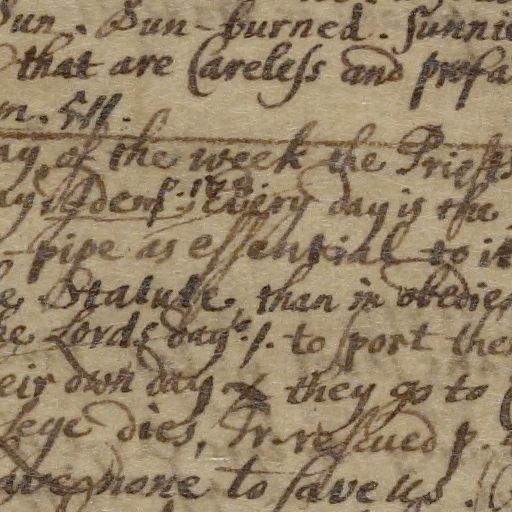 Sun. Sun-burned. sunnie
that are Careless and profa
m.
ay of the week the Priests
ay Idem. 128. Every day is the
- pipe as essential to it
e Statute, than in obedien
he Lords day. to sport the
eir own day & they go to
lege dies, rescued p.
ave none to save us.